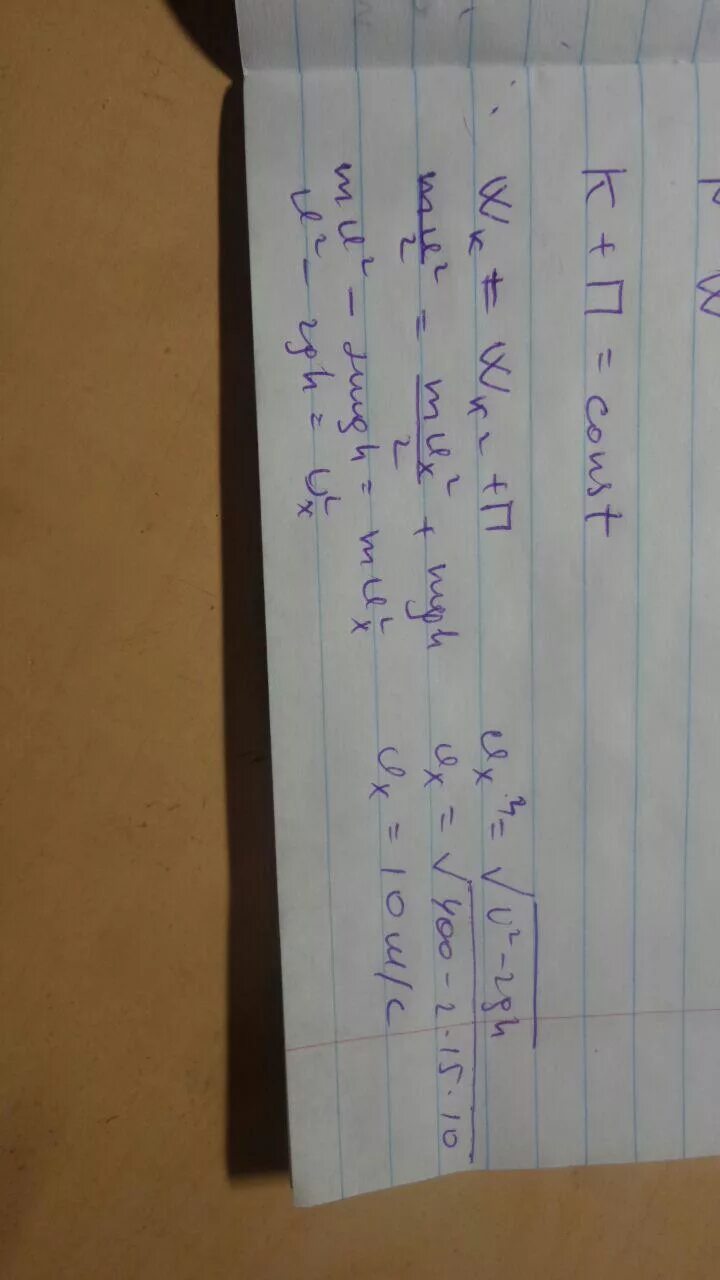 K + П = const
Wк = Wк2 + П
mυ²/2 = mυx²/2 + mgh
mυ² - 2mgh = mυx²
υ² - 2gh = υx²
υx = √υ² - 2gh
υx = √400 - 2·15·10
υx = 10 м/с